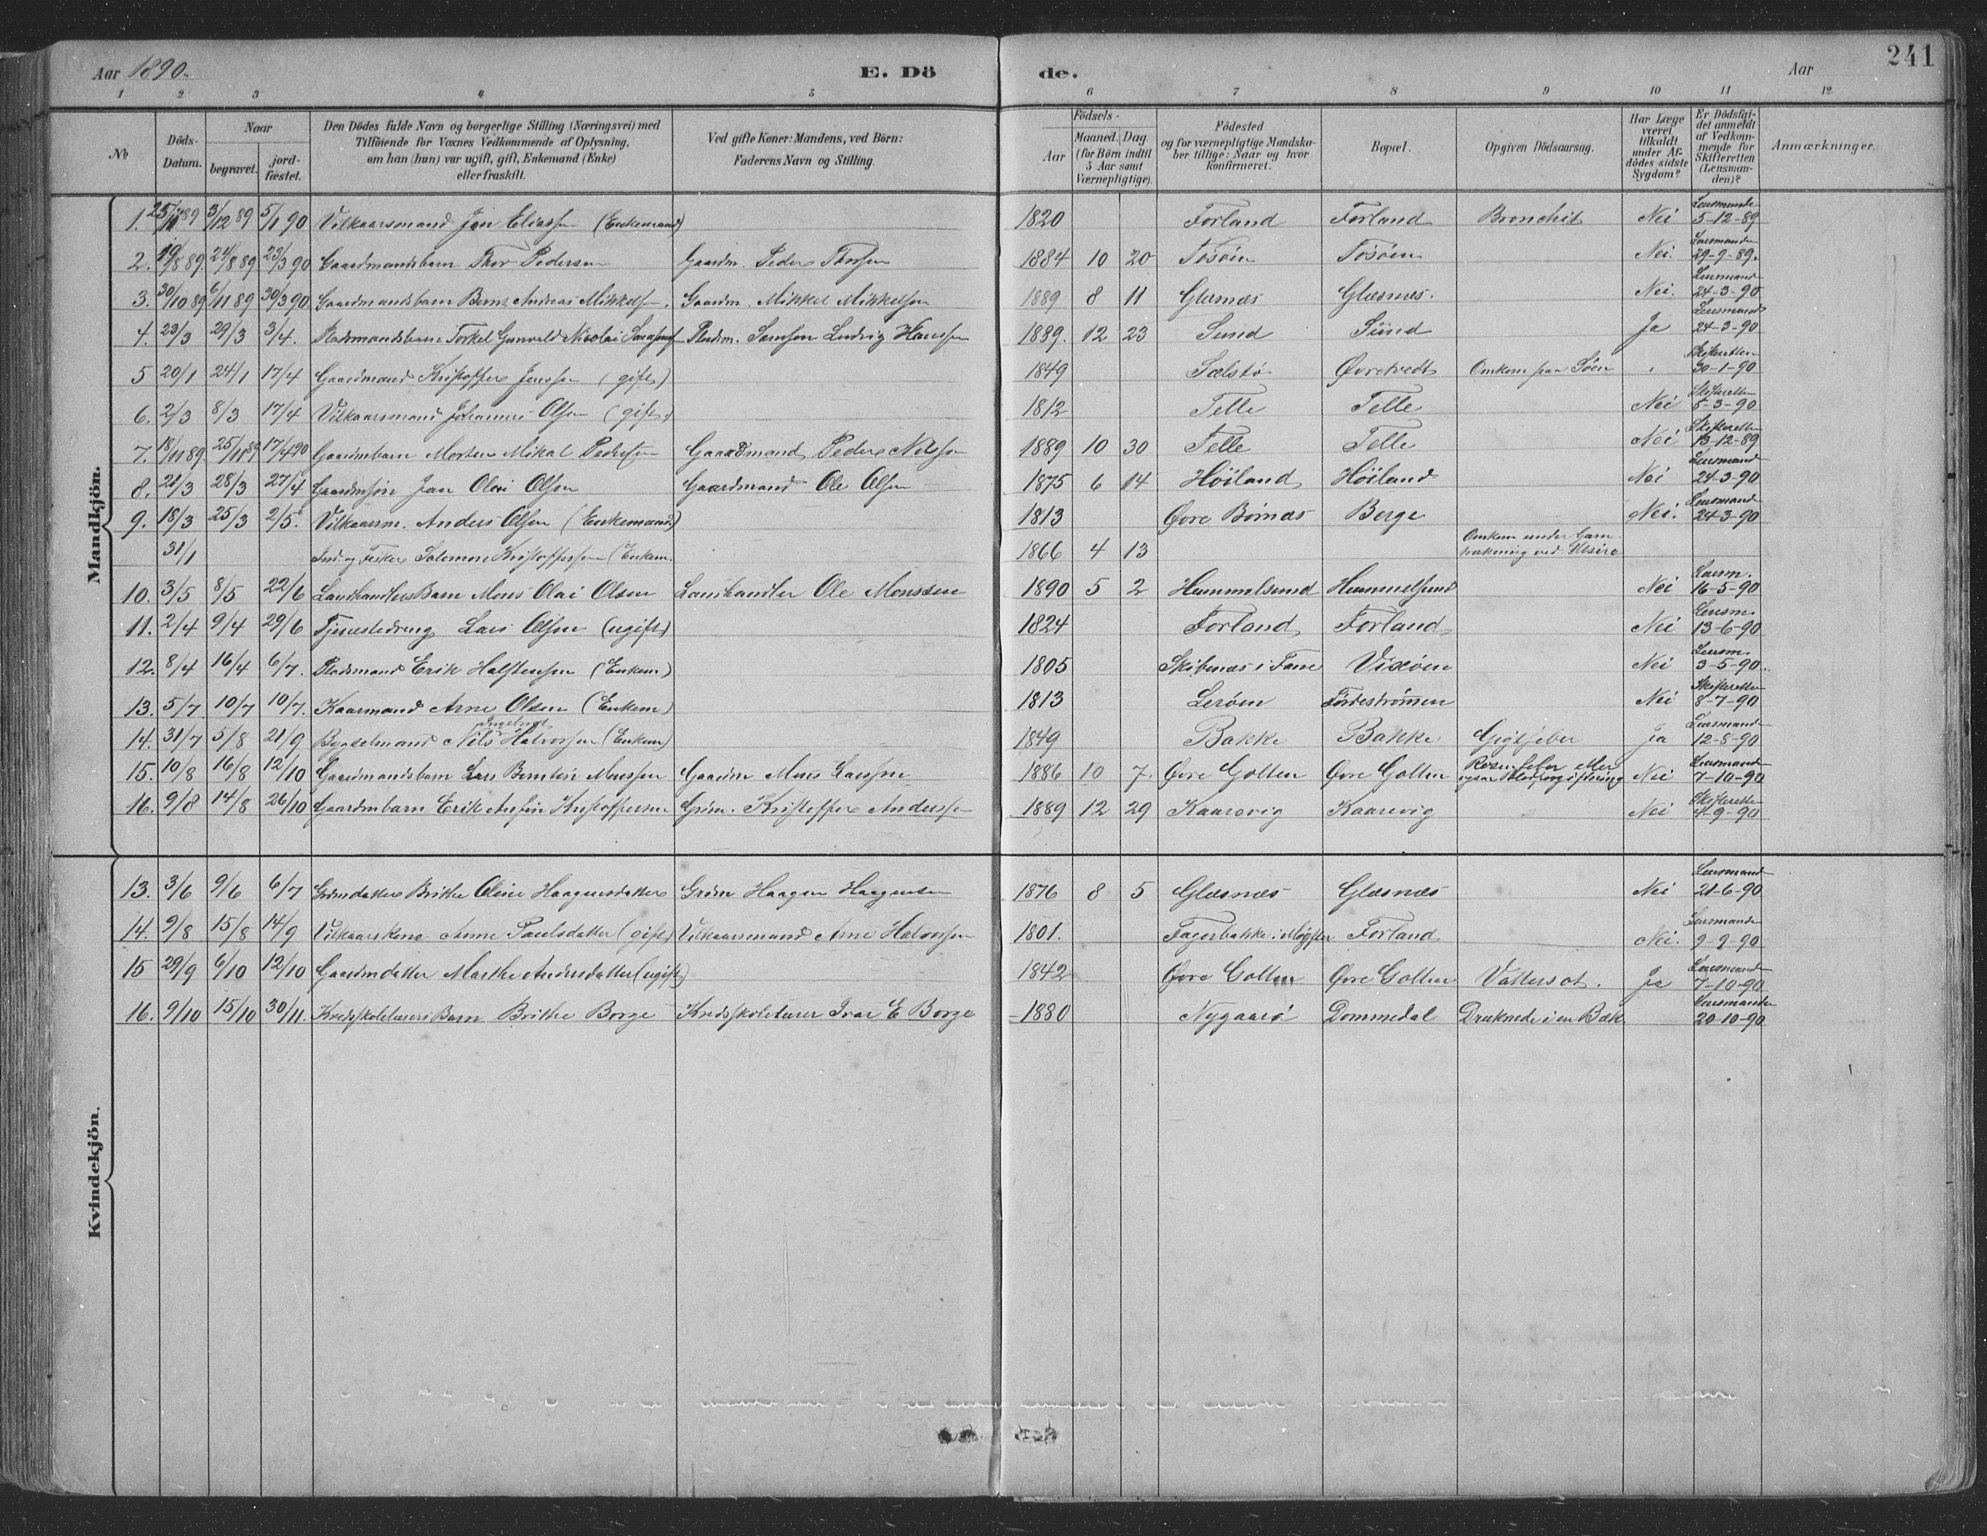 Aar 1890. E. Dö
de. Aar 241
1 2 3 4 5 6 7 8 9 10 11 12
No
Döds-Datum.
Naar
begravet.
jord-fæstet.
Den Dödes fulde Navn og borgerlige Stilling (Næringsvei) med
Tilföiende for Voxnes Vedkommende af Oplysning,
om han (hun) var ugift, gift, Enkemand (Enke)
eller fraskilt.
Ved gifte Koner: Mandens, ved Börn:
Faderens Navn og Stilling.
Födsels-
Aar
Maaned. Dag
(for Börn indtil
5 Aar samt
Værnepligtige).
Födested
og for værnepligtige Mandska-
ber tillige: Naar og hvor
konfirmeret.
Bopæl.
Opgiven Dödsaarsag.
Har Læge
været
tilkaldt
under Af-
dödes sidste
Sygdom?
Er Dödsfal-
det anmeldt
af Vedkom-
mende for
Skifteretten
(Lensman-
den)?
Anmærkninger.
Mandkjön.
1. 25/11 89 3/12 89 5/1 90 Vilkaarsmand Jan Eliassen (Enkemand) 1820 Forland Forland Bronchit Nei Lensmanden 5-12-89
2. 19/8 89. 24/8 89 23/3 90 Gaardmandsbarn Thor Pedersen Gaardm. Peder Thorsen 1884 10 20 Tøsøen Tøsøen Nei. Lensmanden 29-9-89.
3. 30/10 89 6/11 89 30/3 90 Gaardmandsbarn Bernt Andreas Mikkelsen. Gaardm. Mikkel Mikkelsen 1889 8 11 Glæsnæs Glæsnæs. Nei. Lensmand 24-3-90
4. 23/3 29/3 3/4. Pladsmandsbarn Torkel Gunvald Nicolai Pladsm. Samson Ludvig Hanssen 1889. 12 23 Sund Sund Ja Lensmand 24-3-90
5 20/1 24/1 17/4 Gaardmand Kristoffer Jenssen (gift) 1849 Sælstø Øvretvedt Omkom paa Søen Skifteretten 30-1-90
6. 2/3 8/3 17/4 Vilkaarsmand Johannes Olsen (gift.) 1812 Telle Telle Nei Skifteretten 5-3-90
7. 18/11 89. 25/11 89 17/4 90 Gaardmbarn Morten Mikal Pedersen Gaardmand Peder Nilssen 1889 10 30 Telle Telle Nei Skifteretten 13-12-89
8. 21/3 28/3 27/4 Gaardmsøn Jan Olai Olsen Gaardmand Ole Olsen 1875 6 14 Høiland Høiland Nei Lensmand 24-3-90
9. 18/3 25/3 2/5. Vilkaarm. Anders Olsen (Enkemand) 1813 Øvre Børnæs Berge Nei. Lensmand 24-3-90
31/1 Ind. og Fisker Salomon Kristoffersen (Enkem. 1866 4 13 Omkom under Garn-
trækning ved
10. 3/5 8/5 22/6 Landhandlers Barn Mons Olai Olsen Landhandler Ole Monssen 1890 5 2 Hummelsund Hummelsund Nei Lensm. 16-5-90
11. 2/4 9/4 29/6 Tjenestedreng Lars Olsen (ugift) 1824 Forland Forland Nei Lensm. 13-6-90
12. 8/4 16/4 6/7. Pladsmand Erik Halstensen (Enkem) 1805 Skibenæs i Fane Vixøen Nei Lensm. 3-5-90.
13. 5/7 10/7 10/7. Kaarmand Arne Olsen (Enkem) 1813 Lerøen Førdestrømmen Nei Skifteretten 8-7-90
14. 31/7 5/8 21/9 Bygselmand Nils Halvorsen (Enkem) 1849 Bakke Bakke Gigtfeber Ja Lensmand 12-8-90
15. 10/8 16/8 12/10 Gaardmandsbarn Lars Berntin Monssen Gaardm Mons Larssen 1886 10 7. Øvre Golten Øvre Golten Rosenfeber eller
ogsaa Blodforgiftning Nei Lensmand 7-10-90
16. 9/8 14/8 26/10 Gaardmbarn Erik Anfin Kristoffersen Grdm. Kristoffer Anderssen 1889 12 29 Kaarevig Kaarevig Nei Skifteretten 4-9-90
Kvindekjön.
13. 3/6 9/6 6/7 Grdmdatter Brithe Oline Haagensdatter Grdm Haagen Haagensen 1876 8 5 Glæsnæs Glæsnæs Nei Lensmand 21-6-90
14. 9/8 15/8 14/9 Vilkaarskone Anne Paulsdatter (gift) Vilkaarsmand Arne Halvorsen 1801. Fagerbakke i Møgster Forland Nei. Lensmanden 9-9-90
15 29/9 6/10 12/10 Gaardmdatter Marthe Andersdatter (ugift) 1842 Øvre Golten Øvre Golten Vattersot. Ja Lensmand 7-10-90
16. 9/10 15/10 30/11. Kredsskolelærers Barn Brithe Borge Kredsskolelærer Ivar E Borge 1880 Nygaard Dommedal Druknede i en Bæk Lensmanden 20-10-90